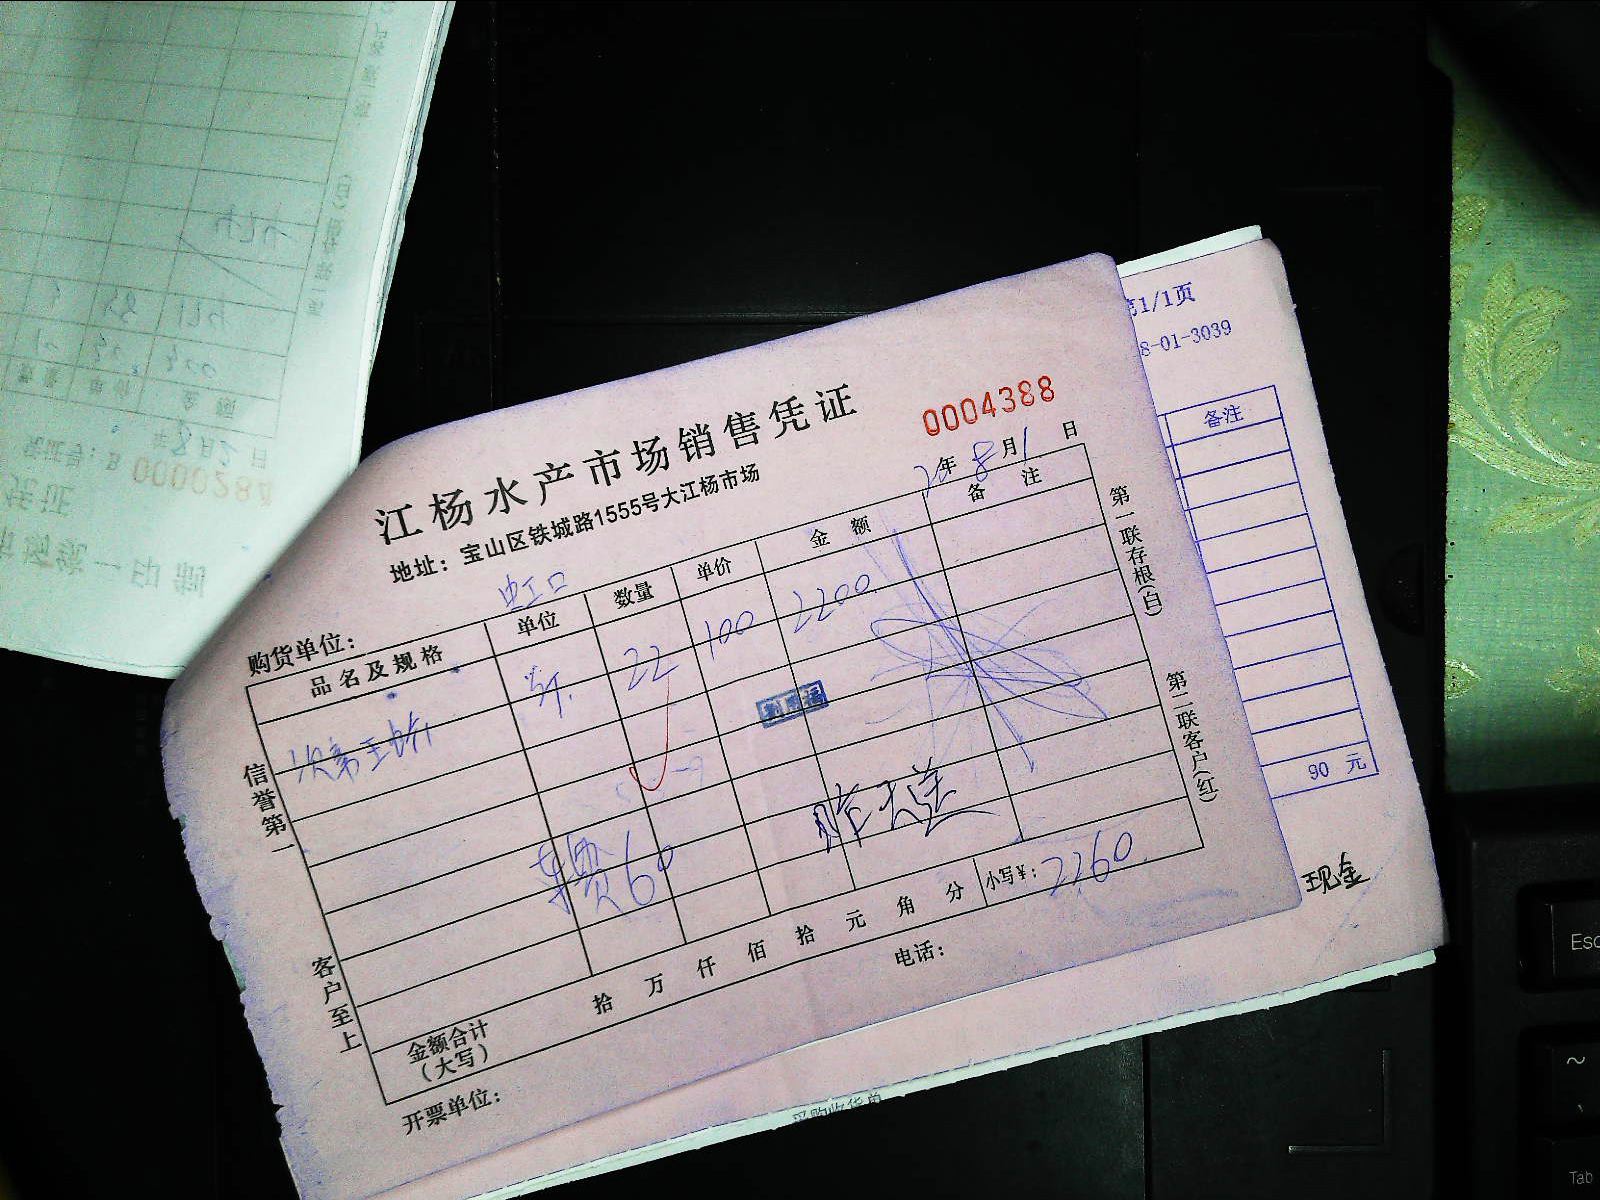 江杨水产市场销售凭证
0004388
地址：宝山区铁城路1555号大江杨市场
20年8月1日
购货单位：虹口
品名及规格 单位 数量 单价 金额 备注
斤 22 100 2200
车费60
昨天送
金额合计（大写） 拾 万 仟 佰 拾 元 角 分 小写¥：2260
开票单位： 电话：
信誉第一 客户至上
第一联存根(白) 第二联客户(红)
第1/1页
8-01-3039
备注
90 元
现金
采购收货单
0000284
Esc
~
Tab